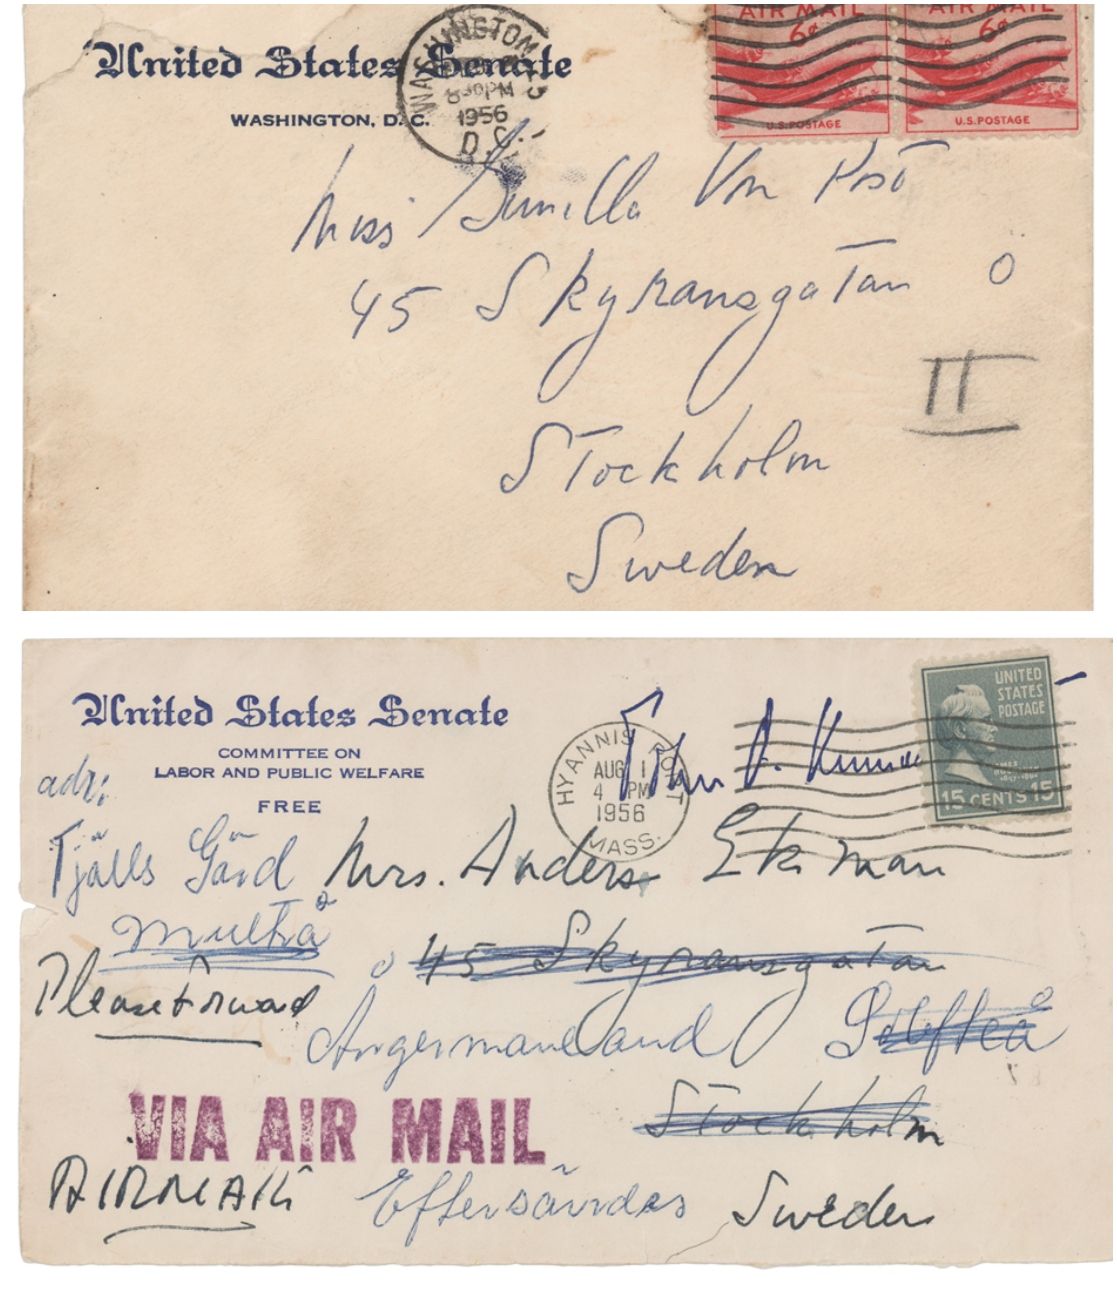 United States Senate
WASHINGTON, D. C.
WASHINGTON
8 30 PM
1956
D.C.
AIR MAIL
6¢
U.S. POSTAGE
AIR MAIL
6¢
U.S. POSTAGE
Miss Gunilla Von Post
45 Skyransgatan Ö
II
Stockholm
Sweden
United States Senate
COMMITTEE ON
LABOR AND PUBLIC WELFARE
FREE
HYANNIS PORT
AUG 1
4 PM
1956
MASS.
John F. Kennedy
UNITED
STATES
POSTAGE
15 CENTS 15
adr:
Tjälls Gård
Mrs. Anders Ekman
Multrå
45 Skyransgatan
Please Forward
Angermanland
Stockholm
VIA AIR MAIL
AIRMAIL
Eftersändes
Sweden